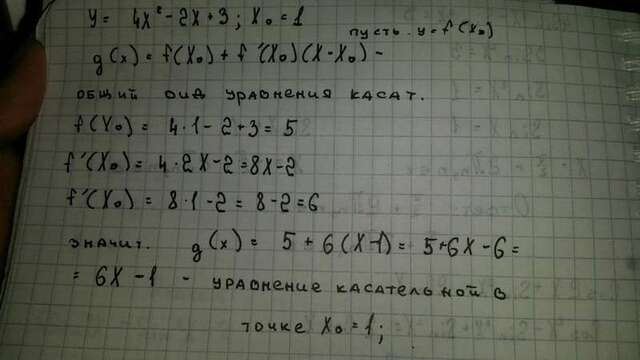 y = 4x² - 2x + 3 ; x₀ = 1
пусть y = f(x₀)
g(x) = f(x₀) + f'(x₀)(x - x₀) -
общий вид уравнения касат.
f(x₀) = 4·1 - 2 + 3 = 5
f'(x₀) = 4·2x - 2 = 8x - 2
f'(x₀) = 8·1 - 2 = 8 - 2 = 6
значит. g(x) = 5 + 6(x-1) = 5 + 6x - 6 =
= 6x - 1 - уравнение касательной в
точке x₀ = 1;